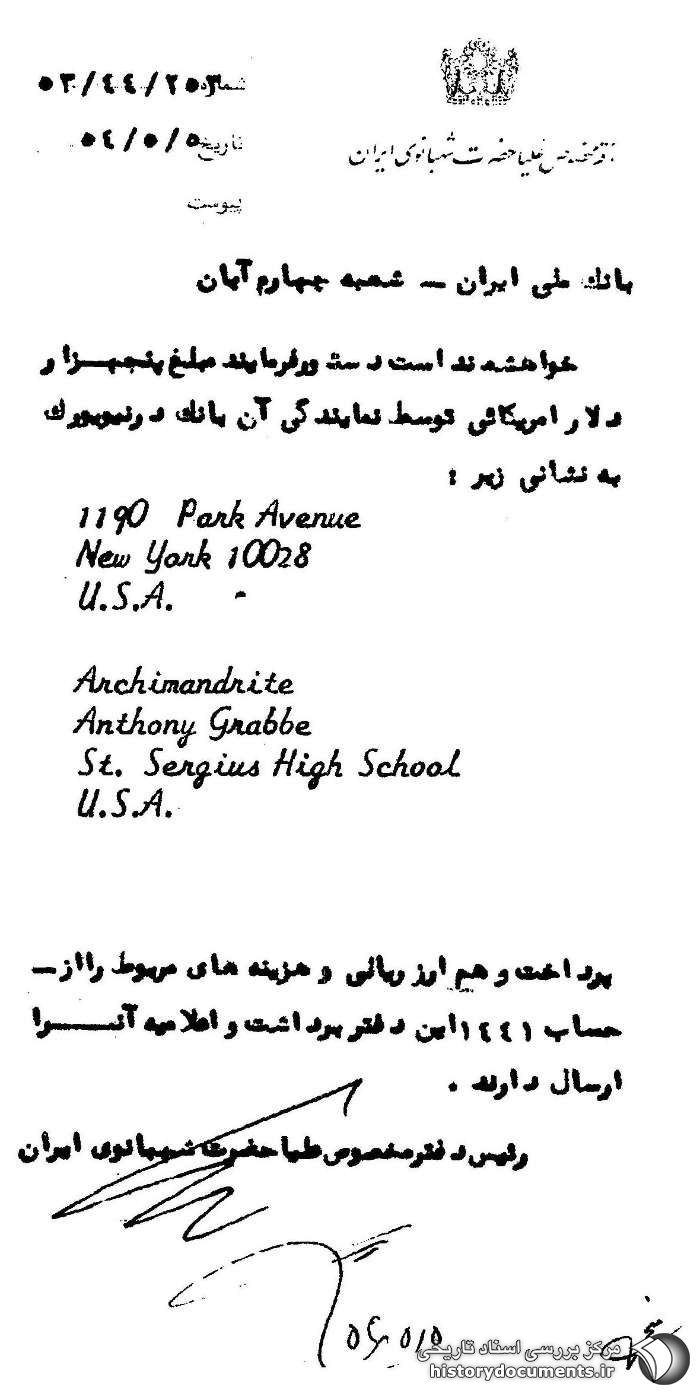 دفتر مخصوص علیاحضرت شهبانوی ایران
شماره ۰۳/۴۴/۲۵۳
تاریخ ۵۴/۵/۵
پیوست
بانك ملی ایران – شعبه چهارم آبان
خواهشمند است دستور فرمایند مبلغ پنجهزار
دلار امریکائی توسط نمایندگی آن بانك در نیویورك
به نشانی زیر :
1190 Park Avenue
New York 10028
U.S.A.
Archimandrite
Anthony Grabbe
St. Sergius High School
U.S.A.
پرداخت و هم ارز ریالی و هزینه های مربوط را از –
حساب ۱۴۴۱ این دفتر برداشت و اعلامیه آنــرا
ارسال دارند .
رئیس دفتر مخصوص علیا حضرت شهبانوی ایران
۵۴/۵/۵
مرکز بررسی اسناد تاریخی
historydocuments.ir